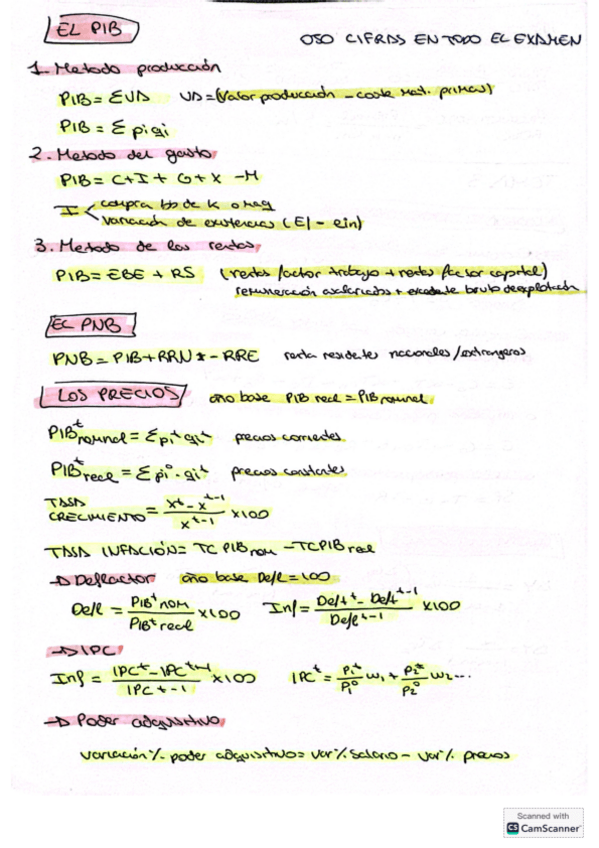 EL PIB
OJO CIFRAS EN TODO EL EXAMEN
1. Metodo producción
PIB = ΣVA VA = (Valor producción - coste mat. primas)
PIB = Σ pi qi
2. Metodo del gasto
PIB = C + I + G + X - M
I < compra bs de K o maq
variación de existencias (Ef - ein)
3. Metodo de las rentas
PIB = EBE + RS (rentas factor trabajo + rentas factor capital)
remuneración asalariados + excedente bruto de explotación
EL PNB
PNB = PIB + RRN - RRE renta residentes nacionales/extrangeros
LOS PRECIOS año base PIB real = PIB nominal
PIB^t nominal = Σ pi^t qi^t precios corrientes
PIB^t real = Σ pi^0 · qi^t precios constantes
TASA CRECIMIENTO = (x^t - x^t-1) / x^t-1 x100
TASA INFLACIÓN = TC PIB nom - TC PIB real
→ Deflactor año base Defl = 100
Defl = PIB^t nom / PIB^t real x100 Inf = (Def^t - Def^t-1) / Defl^t-1 x100
→ IPC
Inf = (IPC^t - IPC^t-1) / IPC^t-1 x100 IPC^t = P1^t/P1^0 w1 + P2^t/P2^0 w2...
→ Poder adquisitivo
variación % poder adquisitivo = var % salario - var % precios
Scanned with
CS CamScanner